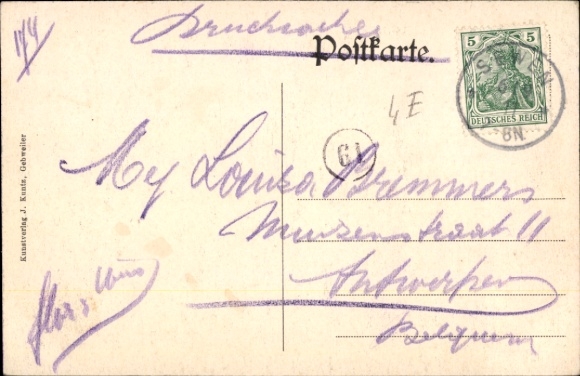 Drucksache
Postkarte.
5 5
DEUTSCHES REICH
BN
4 E
G 1
Mej Louisa Bremmers
straat 11
Antwerpen
Belgium
Kunstverlag J. Kuntz, Gebweiler